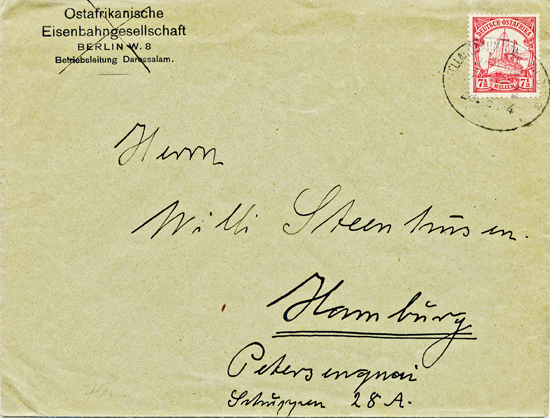 Ostafrikanische
Eisenbahngesellschaft
BERLIN W. 8
Betriebsleitung Daressalam.
DEUTSCH-OSTAFRIKA
7½ HELLER 7½
4
Herrn
Willi Steenhusen.
Hamburg
Petersenquai
Schuppen 28 A.